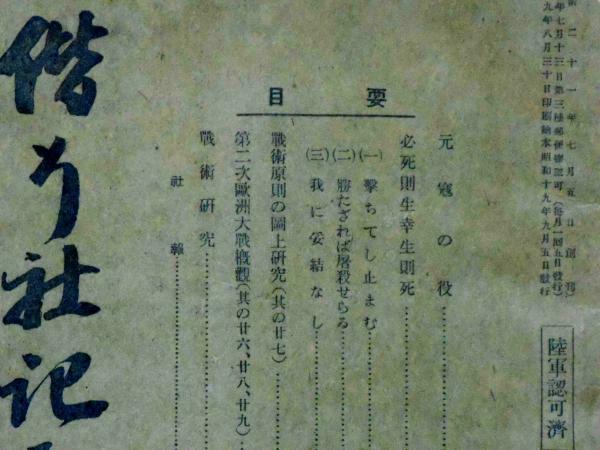 二十一年七月五日創刊
年七月十三日第三種郵便物認可(毎月一回五日發行)
九年八月三十日印刷納本昭和十九年九月五日發行
陸軍認可濟
要目
元寇の役
必死則生幸生則死
(一)擊ちてし止まむ
(二)勝たざれば屠殺せらる
(三)我に妥結なし
戰術原則の圖上硏究(其の廿七)
第二次歐洲大戰槪觀(其の廿六、廿八、廿九)
戰術硏究
社報
偕行社記